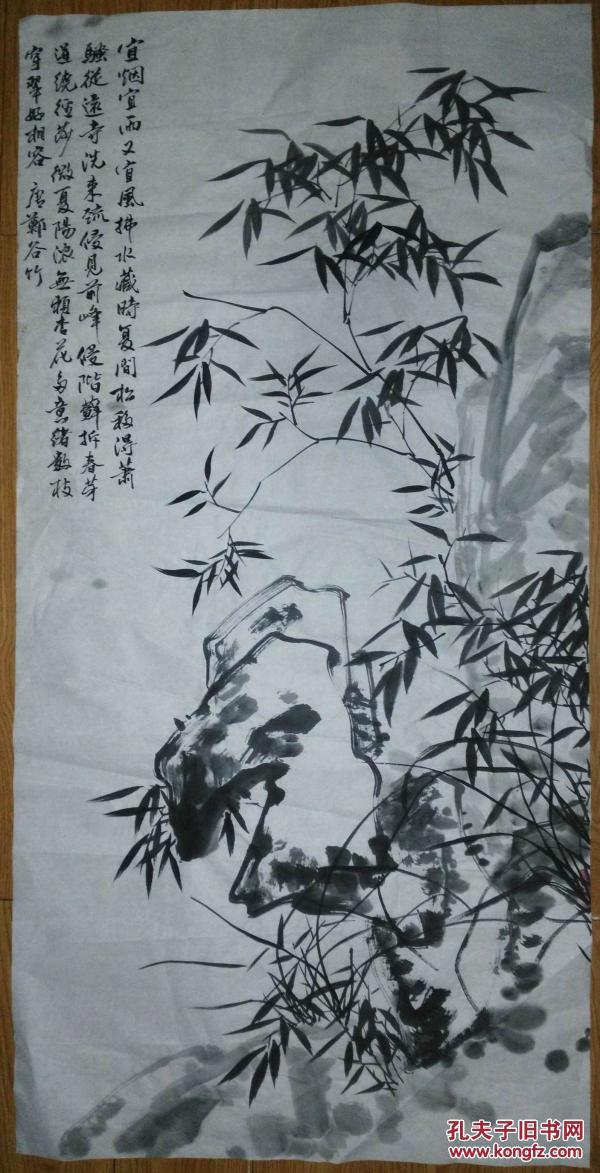 宜烟宜雨又宜風拂水藏時复間松移得萧
騷從遠寺洗来疏侵見前峰侵階蘚拆春芽
迸繞徑莎微夏陽浓無賴杏花多意緒數枝
穿翠好相容 唐鄭谷竹
孔夫子旧书网
www.kongfz.com